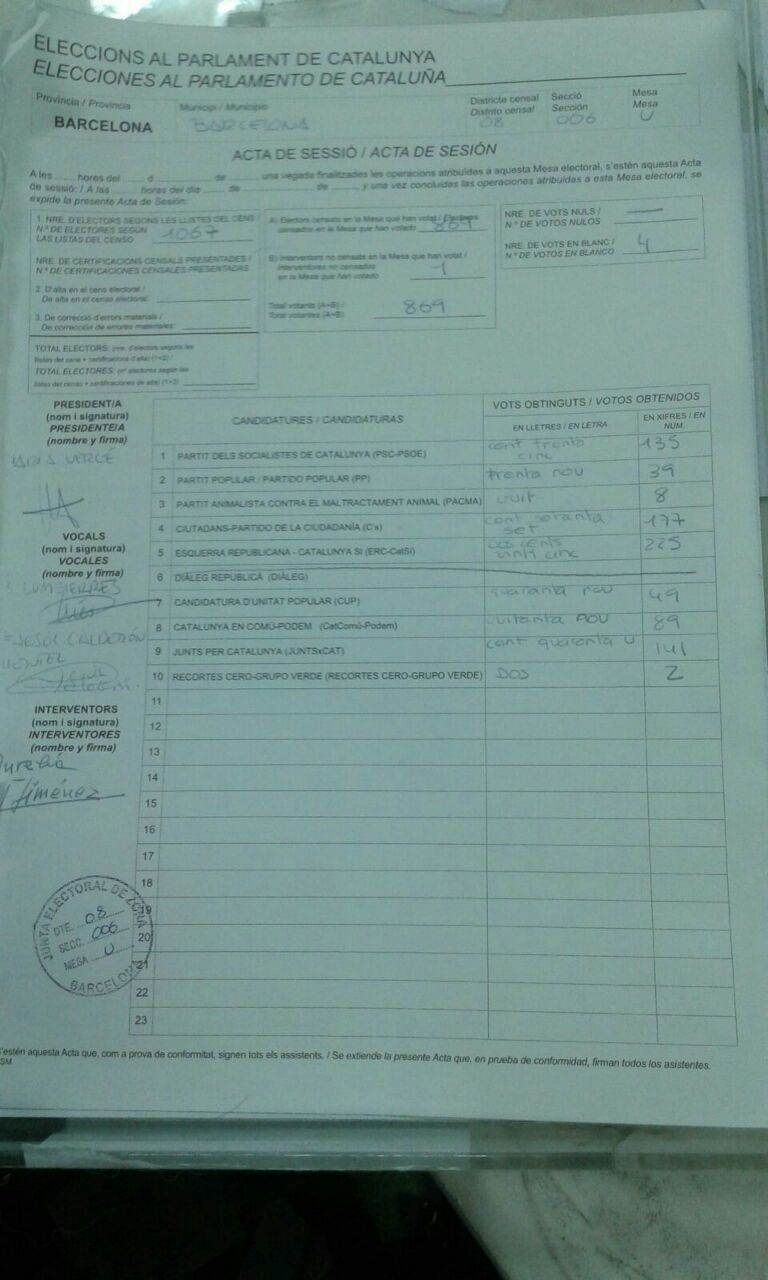 ELECCIONS AL PARLAMENT DE CATALUNYA
ELECCIONES AL PARLAMENTO DE CATALUÑA
Província / Provincia
BARCELONA
Municipi / Municipio
BARCELONA
Districte censal
Distrito censal
08
Secció
Sección
006
Mesa
Mesa
U
ACTA DE SESSIÓ / ACTA DE SESIÓN
A les ...... hores del ...... d ............ de ...... una vegada finalitzades les operacions atribuïdes a aquesta Mesa electoral, s'estén aquesta Acta
de sessió: / A las ...... horas del día ...... de ............ de ...... y una vez concluidas las operaciones atribuidas a esta Mesa electoral, se
expide la presente Acta de Sesión:
1. NRE. D'ELECTORS SEGONS LES LLISTES DEL CENS /
N.º DE ELECTORES SEGÚN
LAS LISTAS DEL CENSO 1067
NRE. DE CERTIFICACIONS CENSALS PRESENTADES /
N.º DE CERTIFICACIONES CENSALES PRESENTADAS
2. D'alta en el cens electoral /
De alta en el censo electoral:
3. De correcció d'errors materials /
De corrección de errores materiales:
TOTAL ELECTORS: (nre. d'electors segons les
llistes del cens + certificacions d'alta) (1+2) /
TOTAL ELECTORES: (nº electores según las
listas del censo + certificaciones de alta) (1+2)
A) Electors censats en la Mesa que han votat / Electores
censados en la Mesa que han votado
B) Interventors no censats en la Mesa que han votat /
Interventores no censados
en la Mesa que han votado 1
Total votants (A+B) /
Total votantes (A+B) 869
NRE. DE VOTS NULS /
N.º DE VOTOS NULOS —
NRE. DE VOTS EN BLANC /
N.º DE VOTOS EN BLANCO 4
PRESIDENT/A
(nom i signatura)
PRESIDENTE/A
(nombre y firma)
VOCALS
(nom i signatura)
VOCALES
(nombre y firma)
INTERVENTORS
(nom i signatura)
INTERVENTORES
(nombre y firma)
Jiménez
CANDIDATURES / CANDIDATURAS
VOTS OBTINGUTS / VOTOS OBTENIDOS
EN LLETRES / EN LETRA
EN XIFRES / EN NÚM.
1 PARTIT DELS SOCIALISTES DE CATALUNYA (PSC-PSOE) cent trenta cinc 135
2 PARTIT POPULAR / PARTIDO POPULAR (PP) trenta nou 39
3 PARTIT ANIMALISTA CONTRA EL MALTRACTAMENT ANIMAL (PACMA) vuit 8
4 CIUTADANS-PARTIDO DE LA CIUDADANÍA (C's) cent setanta set 177
5 ESQUERRA REPUBLICANA - CATALUNYA SÍ (ERC-CatSí) dos cents vinti cinc 225
6 DIÀLEG REPUBLICÀ (DIÀLEG)
7 CANDIDATURA D'UNITAT POPULAR (CUP) quaranta nou 49
8 CATALUNYA EN COMÚ-PODEM (CatComú-Podem) vuitanta nou 89
9 JUNTS PER CATALUNYA (JUNTSxCAT) cent quaranta u 141
10 RECORTES CERO-GRUPO VERDE (RECORTES CERO-GRUPO VERDE) DOS 2
11
12
13
14
15
16
17
18
19
20
21
22
23
JUNTA ELECTORAL DE ZONA
DTE. 08
SECC. 006
MESA U
BARCELONA
S'estén aquesta Acta que, com a prova de conformitat, signen tots els assistents. / Se extiende la presente Acta que, en prueba de conformidad, firman todos los asistentes.